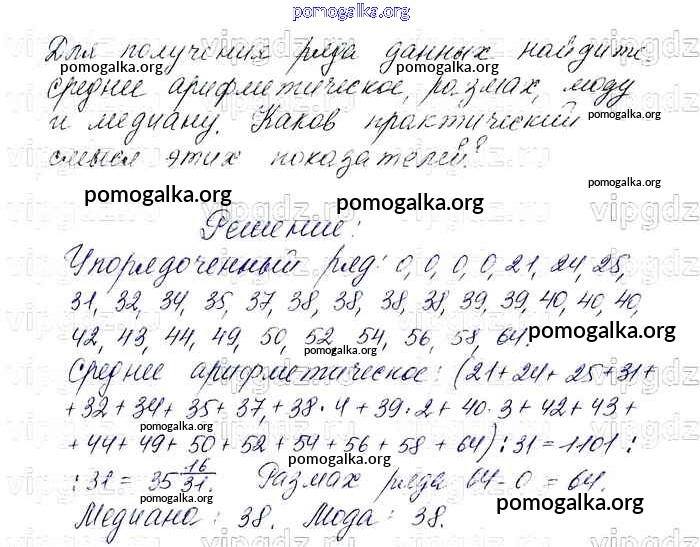 pomogalka.org
Для полученных ряда данных найдите
pomogalka.org pomogalka.org
среднее арифметическое, размах, моду
и медиану. Каков практический
pomogalka.org
смысл этих показателей?
pomogalka.org pomogalka.org pomogalka.org
Решение:
Упорядоченный ряд: 0, 0, 0, 0, 21, 24, 25,
pomogalka.org
31, 32, 34, 35, 37, 38, 38, 38, 38, 39, 39, 40, 40, 40,
42, 43, 44, 49, 50, 52, 54, 56, 58, 64
pomogalka.org
pomogalka.org
Среднее арифметическое: (21+24+25+31+
+32+34+35+37,+38·4+39·2+40·3+42+43+
pomogalka.org
+44+49+50+52+54+56+58+64):31=1101:
:31=35 16/31. Размах ряда 64-0=64.
pomogalka.org pomogalka.org pomogalka.org
Медиана: 38. Мода: 38.
pomogalka.org